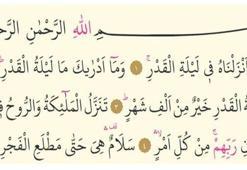 ـــمِ اللّٰهِ الرَّحْمٰنِ الرَّحـ
اَنْزَلْنَاهُ ف۪ي لَيْلَةِ الْقَدْرِ ﴿١﴾ وَمَٓا اَدْرٰيكَ مَا لَيْلَةُ الْقَدْرِ
ـةُ الْقَدْرِ خَيْرٌ مِنْ اَلْفِ شَهْرٍ ﴿٣﴾ تَنَزَّلُ الْمَلٰٓئِكَةُ وَالرُّوحُ فـ
نِ رَبِّهِمْ مِنْ كُلِّ اَمْرٍ ﴿٤﴾ سَلَامٌ هِيَ حَتّٰى مَطْلَعِ الْفَجْرِ